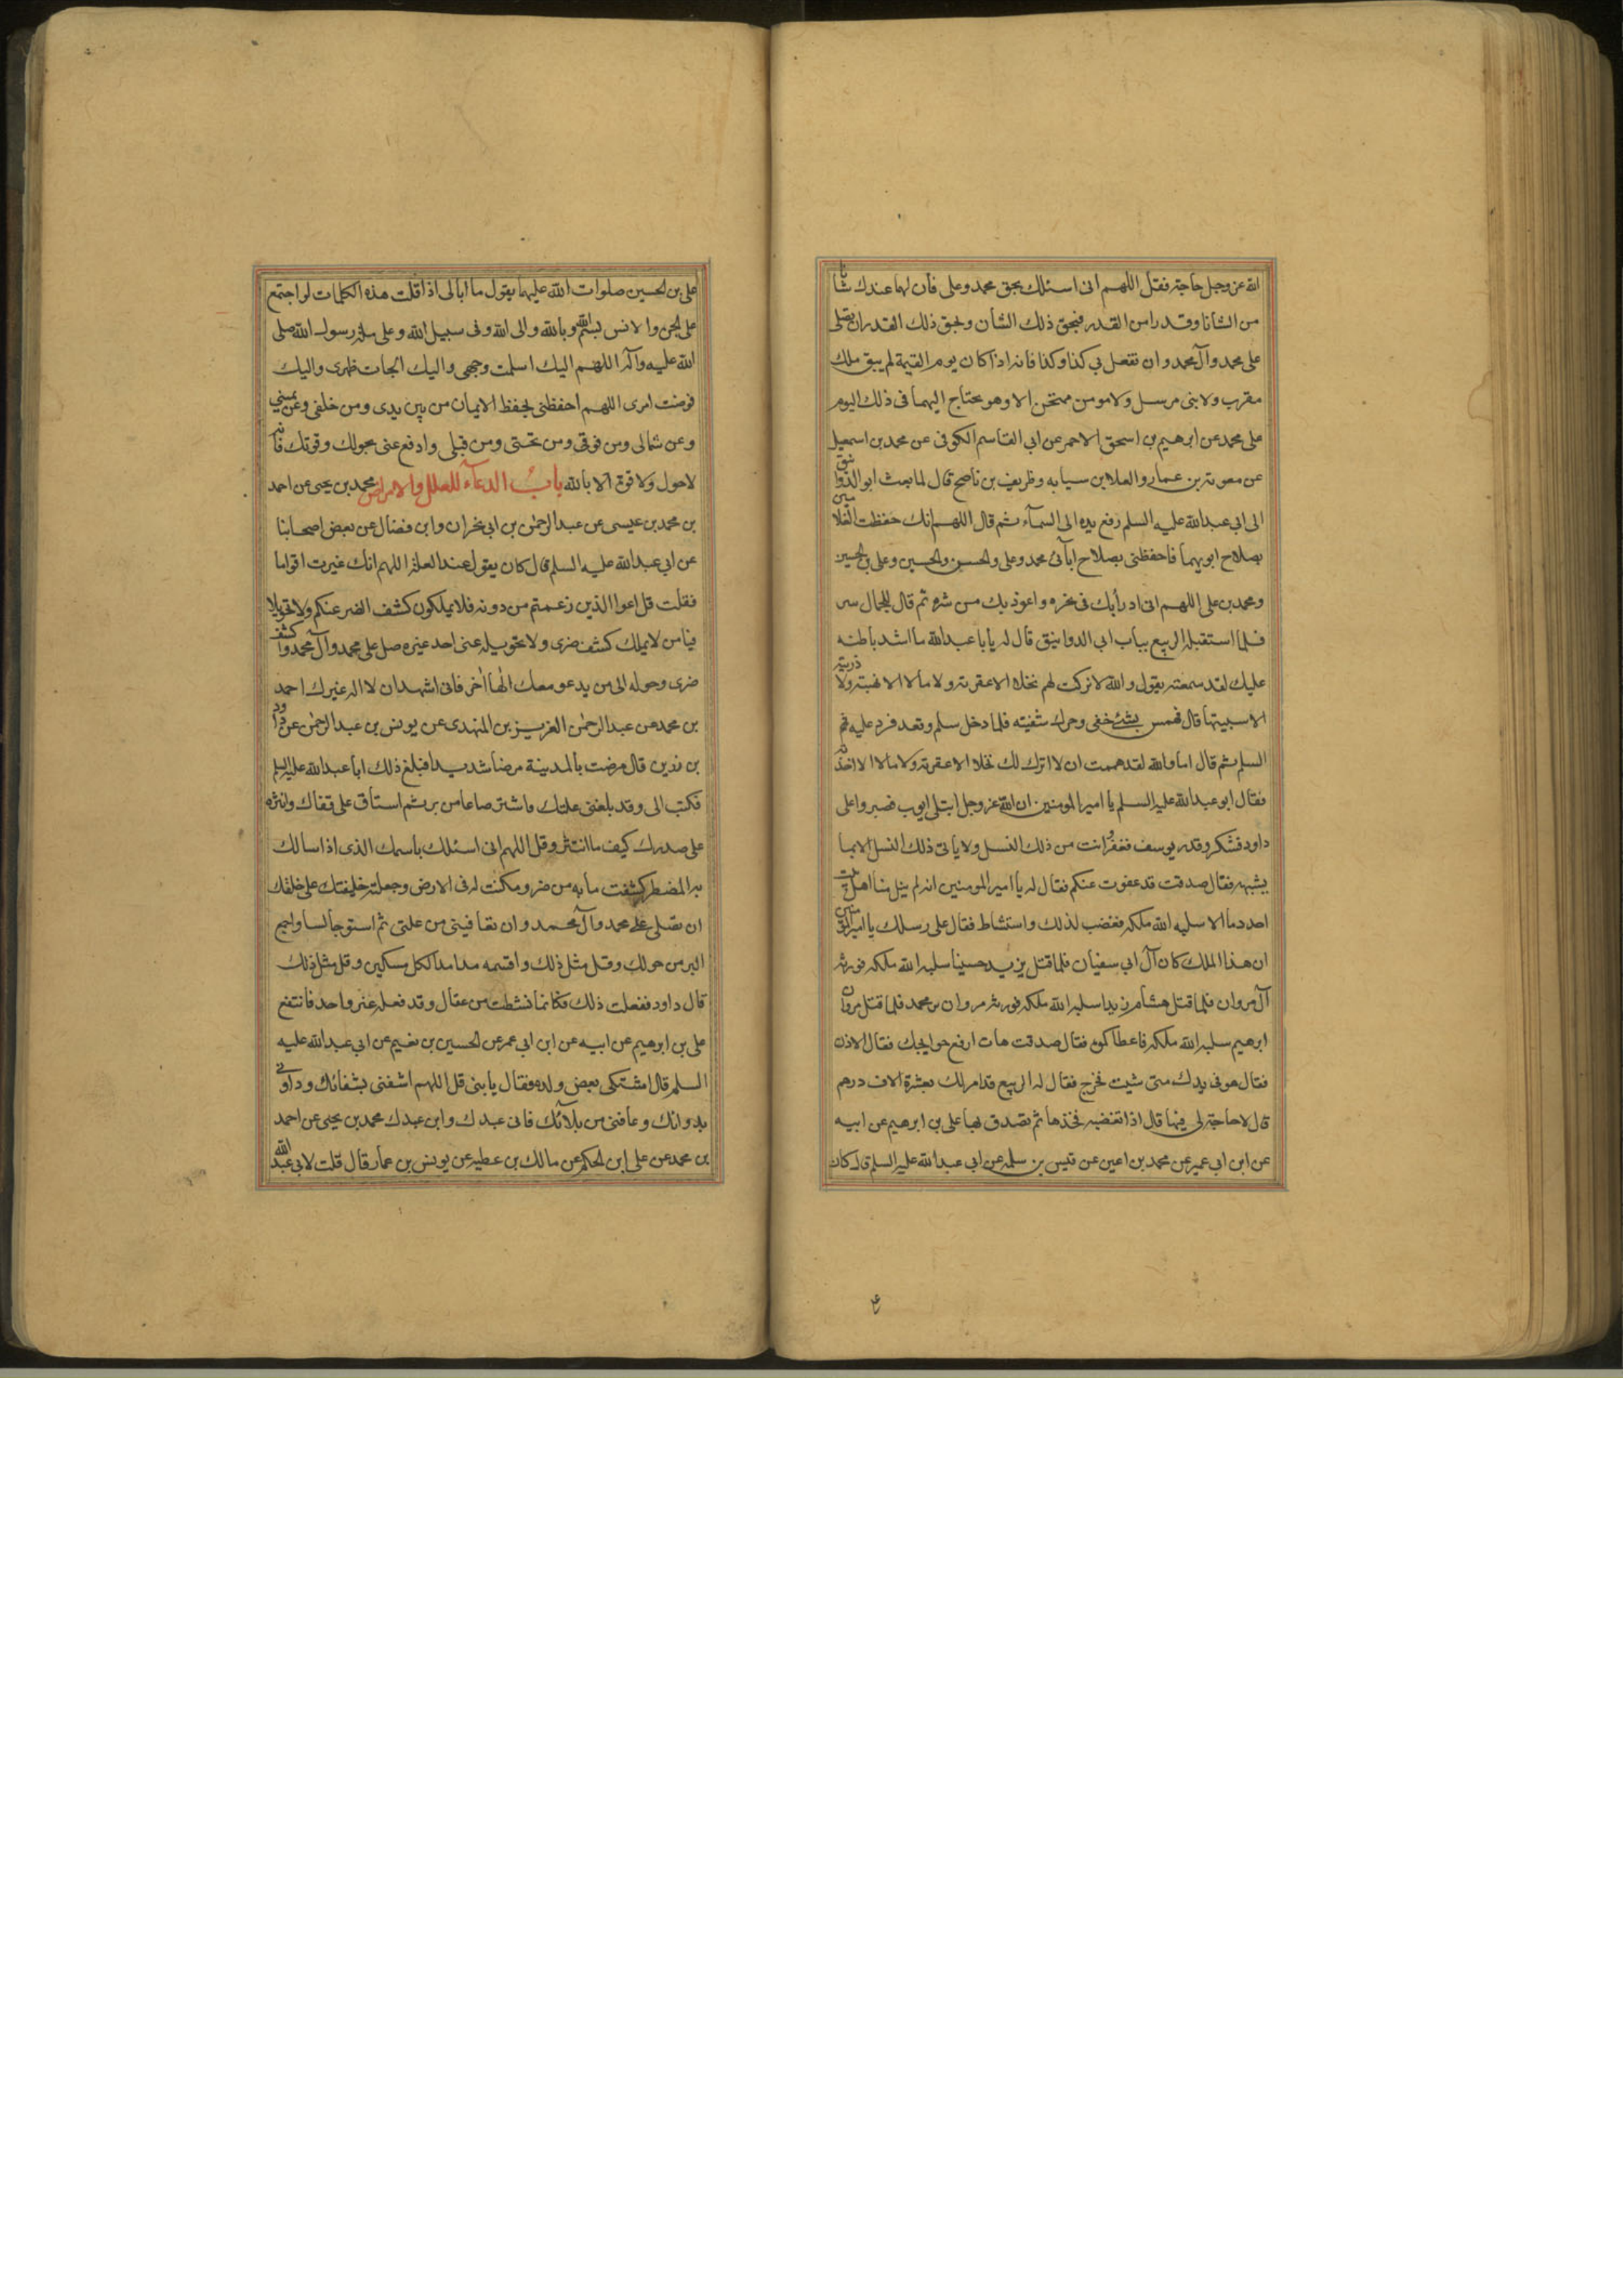 الله عز وجل حاجة فقل اللهم انى اسئلك بحق محمد وعلى فان لهما عندك شانا
من الشانا وقدرا من القدر فبحق ذلك الشان وبحق ذلك القدر ان تصلى
على محمد وآل محمد وان تفعل بى كذا وكذا فانه اذا كان يوم القيمة لم يبق ملك
مقرب ولا نبى مرسل ولا مومن ممتحن الا وهو يحتاج اليهما فى ذلك اليوم
على محمد عن ابرهيم بن اسحق الاحمر عن ابى القاسم الكوفى عن محمد بن اسمعيل
عن معوية بن عمار والعلا بن سيابه وظريف بن ناصح قال لما بعث ابو الدوانيق
الى ابى عبدالله عليه السلم رفع يده الى السمآء ثم قال اللهم انك حفظت الغلامين
بصلاح ابويهما فاحفظنى بصلاح ابآئى محمد وعلى والحسن والحسين وعلى بن الحسين
ومحمد بن على اللهم انى ادرأ بك فى نحره واعوذ بك من شره ثم قال للجمال سر
فلما استقبله الربيع بباب ابى الدوانيق قال له يا با عبدالله ما اشد باطنه
عليك لقد سمعته يقول والله لا تركت لهم نخلا الا عقرته ولا مالا الا نهبته ولا ذرية
الا سبيتها قال فهمس بشئ خفى وحرك شفتيه فلما دخل سلم وقعد فرد عليه
السلم ثم قال اما والله لقد هممت ان لا اترك لك نخلا الا عقرته ولا مالا الا اخذته
فقال ابو عبدالله عليه السلم يا امير المومنين ان الله عز وجل ابتلى ايوب فصبر واعلى
داود فشكر وقدر يوسف فغفر وانت من ذلك النسل ولا ياتى ذلك النسل الا بما
يشبهه فقال صدقت قد عفوت عنكم فقال له يا امير المومنين انه لم ينل منا اهل بيت
احد دما الا سلبه الله ملكه فغضب لذلك واستشاط فقال على رسلك يا امير المومنين
ان هذا الملك كان آل ابى سفيان فلما قتل يزيد حسينا سلبه الله ملكه فورثه
آل مروان فلما قتل هشام زيدا سلبه الله ملكه فورثه مروان بن محمد فلما قتل مروان
ابرهيم سلبه الله ملكه فاعطاكموه فقال صدقت هات ارفع حوايجك فقال الاذن
فقال هو فى يدك متى شيت فخرج فقال له الربيع قد امر لك بعشرة الاف درهم
قال لا حاجة لى فيها قال اذا تغضبه فخذها ثم تصدق بها على بن ابرهيم عن ابيه
عن ابن ابى عمير عن محمد بن اعين عن قيس بن سلمه عن ابى عبدالله عليه السلم قال كان
على بن الحسين صلوات الله عليهما يقول ما ابالى اذا قلت هذه الكلمات لو اجتمع
على الجن والانس بسم الله وبالله والى الله وفى سبيل الله وعلى ملة رسول الله صلى
الله عليه وآله اللهم اليك اسلمت وجهى واليك الجات ظهرى واليك
فوضت امرى اللهم احفظنى بحفظ الايمان من بين يدى ومن خلفى وعن يمينى
وعن شمالى ومن فوقى ومن تحتى ومن قبلى وادفع عنى بحولك وقوتك فانه
لا حول ولا قوة الا بالله باب الدعآء للعلل والامراض محمد بن يحيى عن احمد
بن محمد بن عيسى عن عبد الرحمن بن ابى نجران وابن فضال عن بعض اصحابنا
عن ابى عبدالله عليه السلم قال كان يقول عند العلة اللهم انك عيرت اقواما
فقلت قل ادعوا الذين زعمتم من دونه فلا يملكون كشف الضر عنكم ولا تحويلا
فيا من لا يملك كشف ضرى ولا تحويله عنى احد غيره صل على محمد وآل محمد واكشف
ضرى وحوله الى من يدعو معك الها آخر فانى اشهد ان لا اله غيرك احمد
بن محمد عن عبد الرحمن العزيز بن المهتدى عن يونس بن عبد الرحمن عن داود
بن زربى قال مرضت بالمدينة مرضا شديدا فبلغ ذلك ابا عبدالله عليه السلم
فكتب الى وقد بلغنى علتك فاشتر صاعا من بر ثم استلق على قفاك وانثره
على صدرك كيف ما انتثر وقل اللهم انى اسئلك باسمك الذى اذا سالك
به المضطر كشفت ما به من ضر ومكنت له فى الارض وجعلته خليفتك على خلقك
ان تصلى على محمد وآل محمد وان تعافينى من علتى ثم استو جالسا واجمع
البر من حولك وقل مثل ذلك واقسمه مدا مدا لكل مسكين وقل مثل ذلك
قال داود ففعلت ذلك فكانما نشطت من عقال وقد فعله غير واحد فانتفع
على بن ابرهيم عن ابيه عن ابن ابى عمر عن الحسين بن نعيم عن ابى عبدالله عليه
السلم قال اشتكى بعض ولده فقال يا بنى قل اللهم اشفنى بشفائك وداونى
بدوائك وعافنى من بلآئك فانى عبدك وابن عبدك محمد بن يحيى عن احمد
بن محمد عن على ابن الحكم عن مالك بن عطيه عن يونس بن عمار قال قلت لابى عبدالله